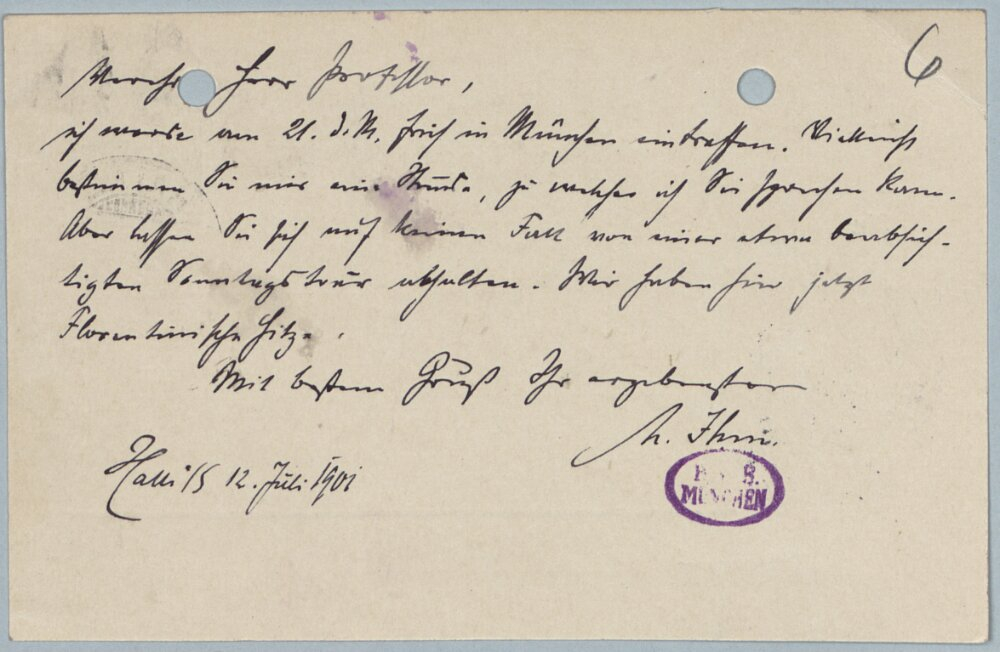 6
Verehr Herr Professor,
ich werde am 21. d. M. früh in München eintreffen. Vielleicht
bestimmen Sie mir eine Stunde, zu welcher ich Sie sprechen kann.
Aber lassen Sie sich auf keinen Fall von einer etwa beabsich-
tigten Sonntagstour abhalten. Wir haben hier jetzt
Florentinische Hitze.
Mit bestem Gruß Ihr ergebenster
M. Ihm.
Halle a/S 12. Juli 1901
B. S. B.
MÜNCHEN